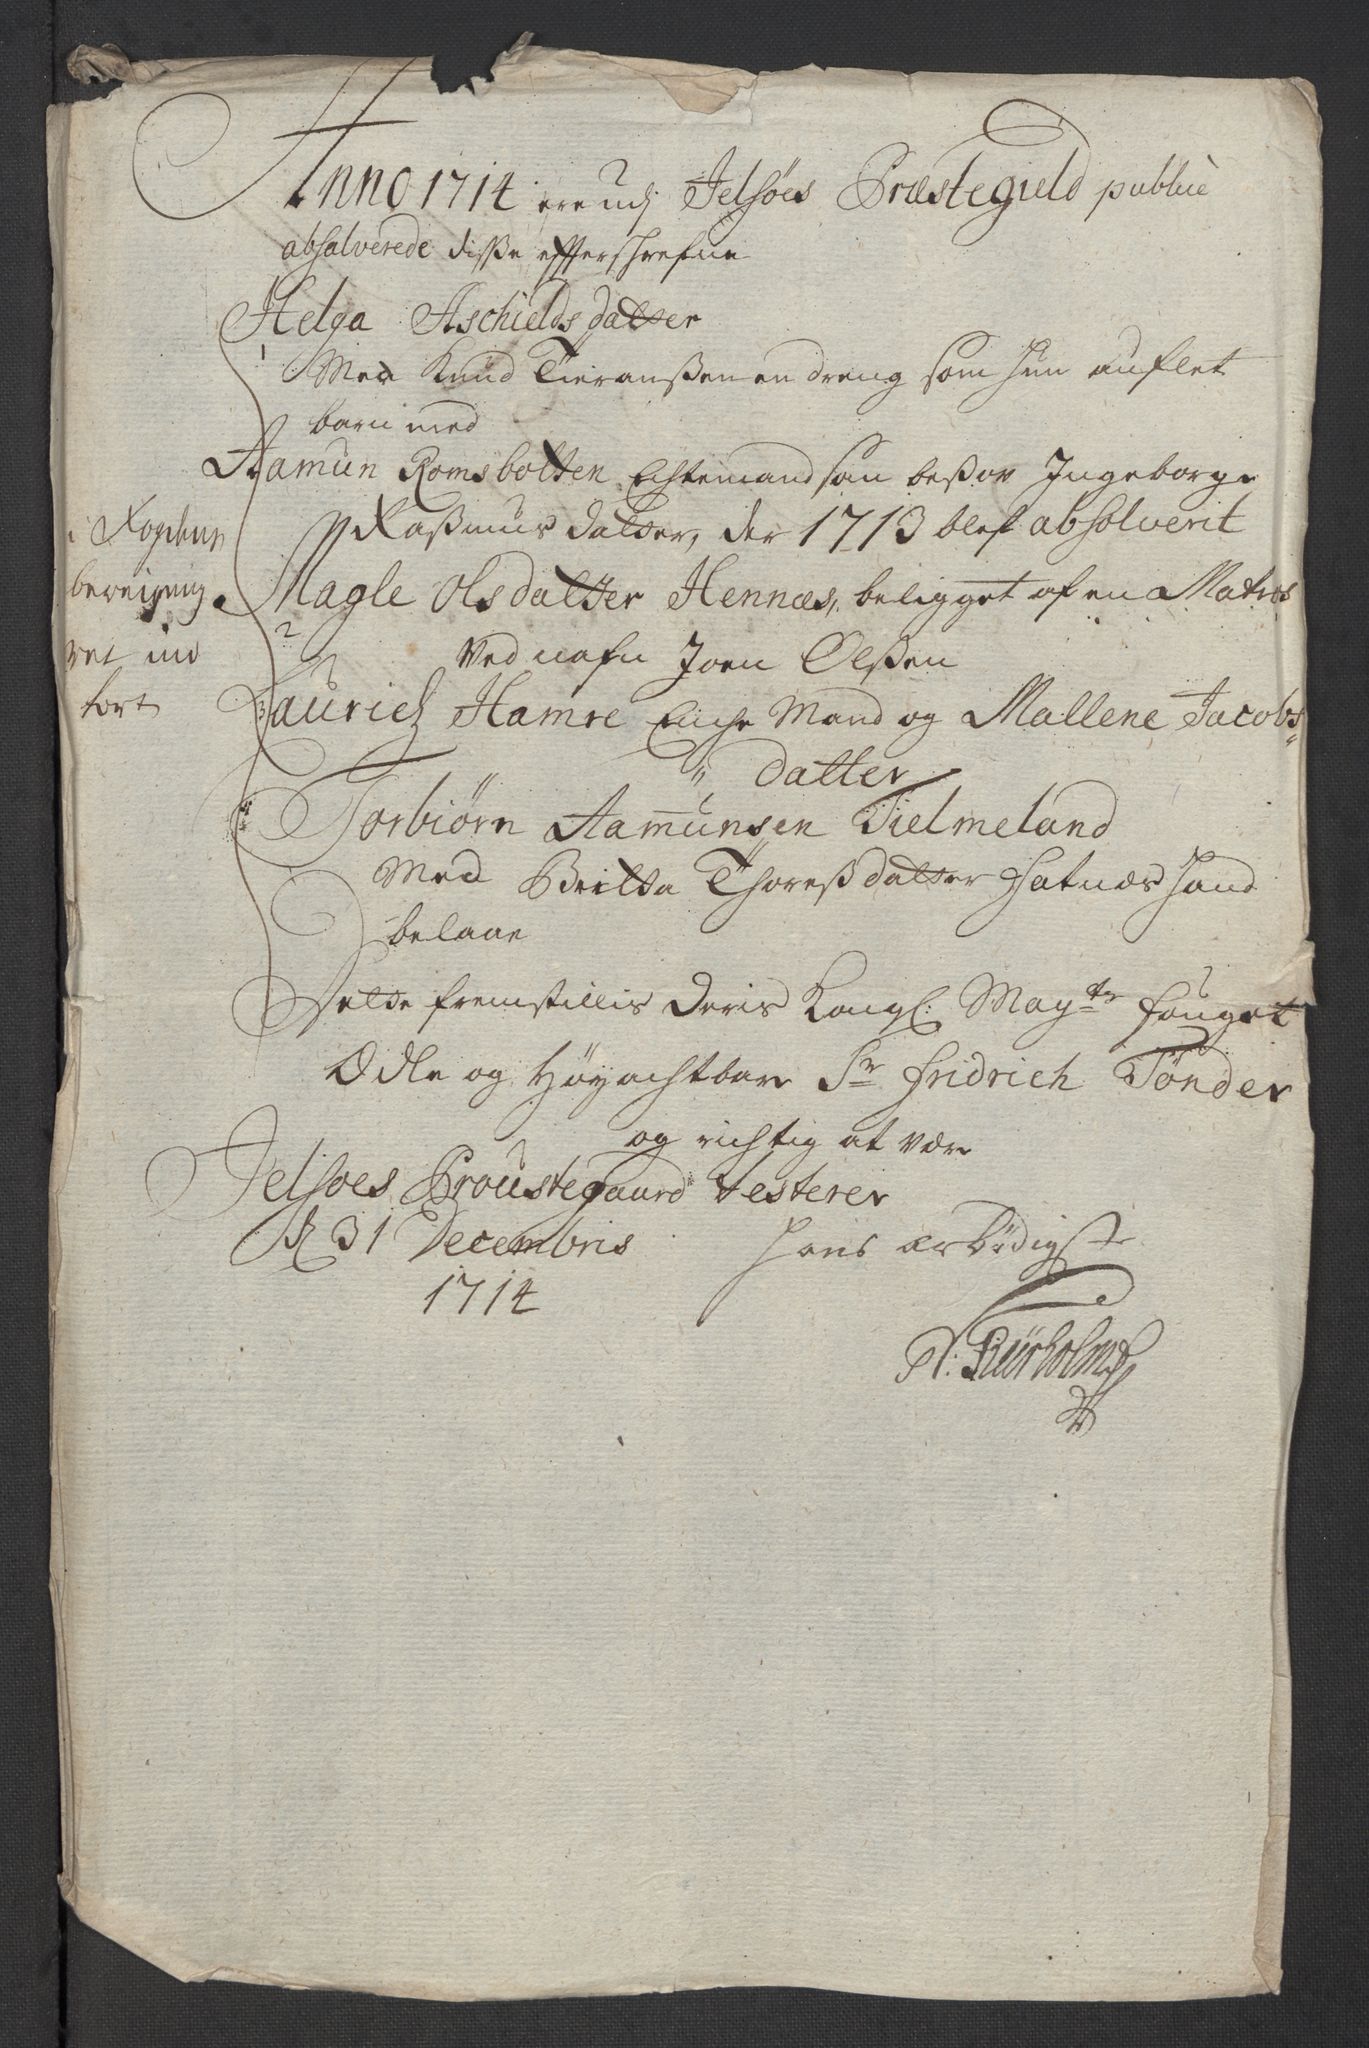 Anno 1714 ere udj Jelsøes Præstegield public
absalverede disse effterschrefne
Helga Aschieldsdatter
1 Med Knud Tieransßen en dreng som hun auflet
barn med
Aamun Romsbotten Echtemand som besov Ingeborge
Raßmusdatter, der 1713 blef absolverit
Magle Olsdatter Hennæs, beligget af en Matros
2 ved nafn Joen Olßen
3 Lauridz Hamre Enche Mand og Mallene Jacobs
datter
4 Torbiørn Aamunsen Tielmeland
Med Britta Thoreßdatter Hatnæs hand
belaae
Dette fremstillis Deris Kongl: Mayts fouget
Ædle og Høyachtbare Sr Fridrich Tønder
og richtig at være
Jelsøes Proustegaard testerer
D 31 Decembris
hans ærbødigste
1714
i
ret ind
fort